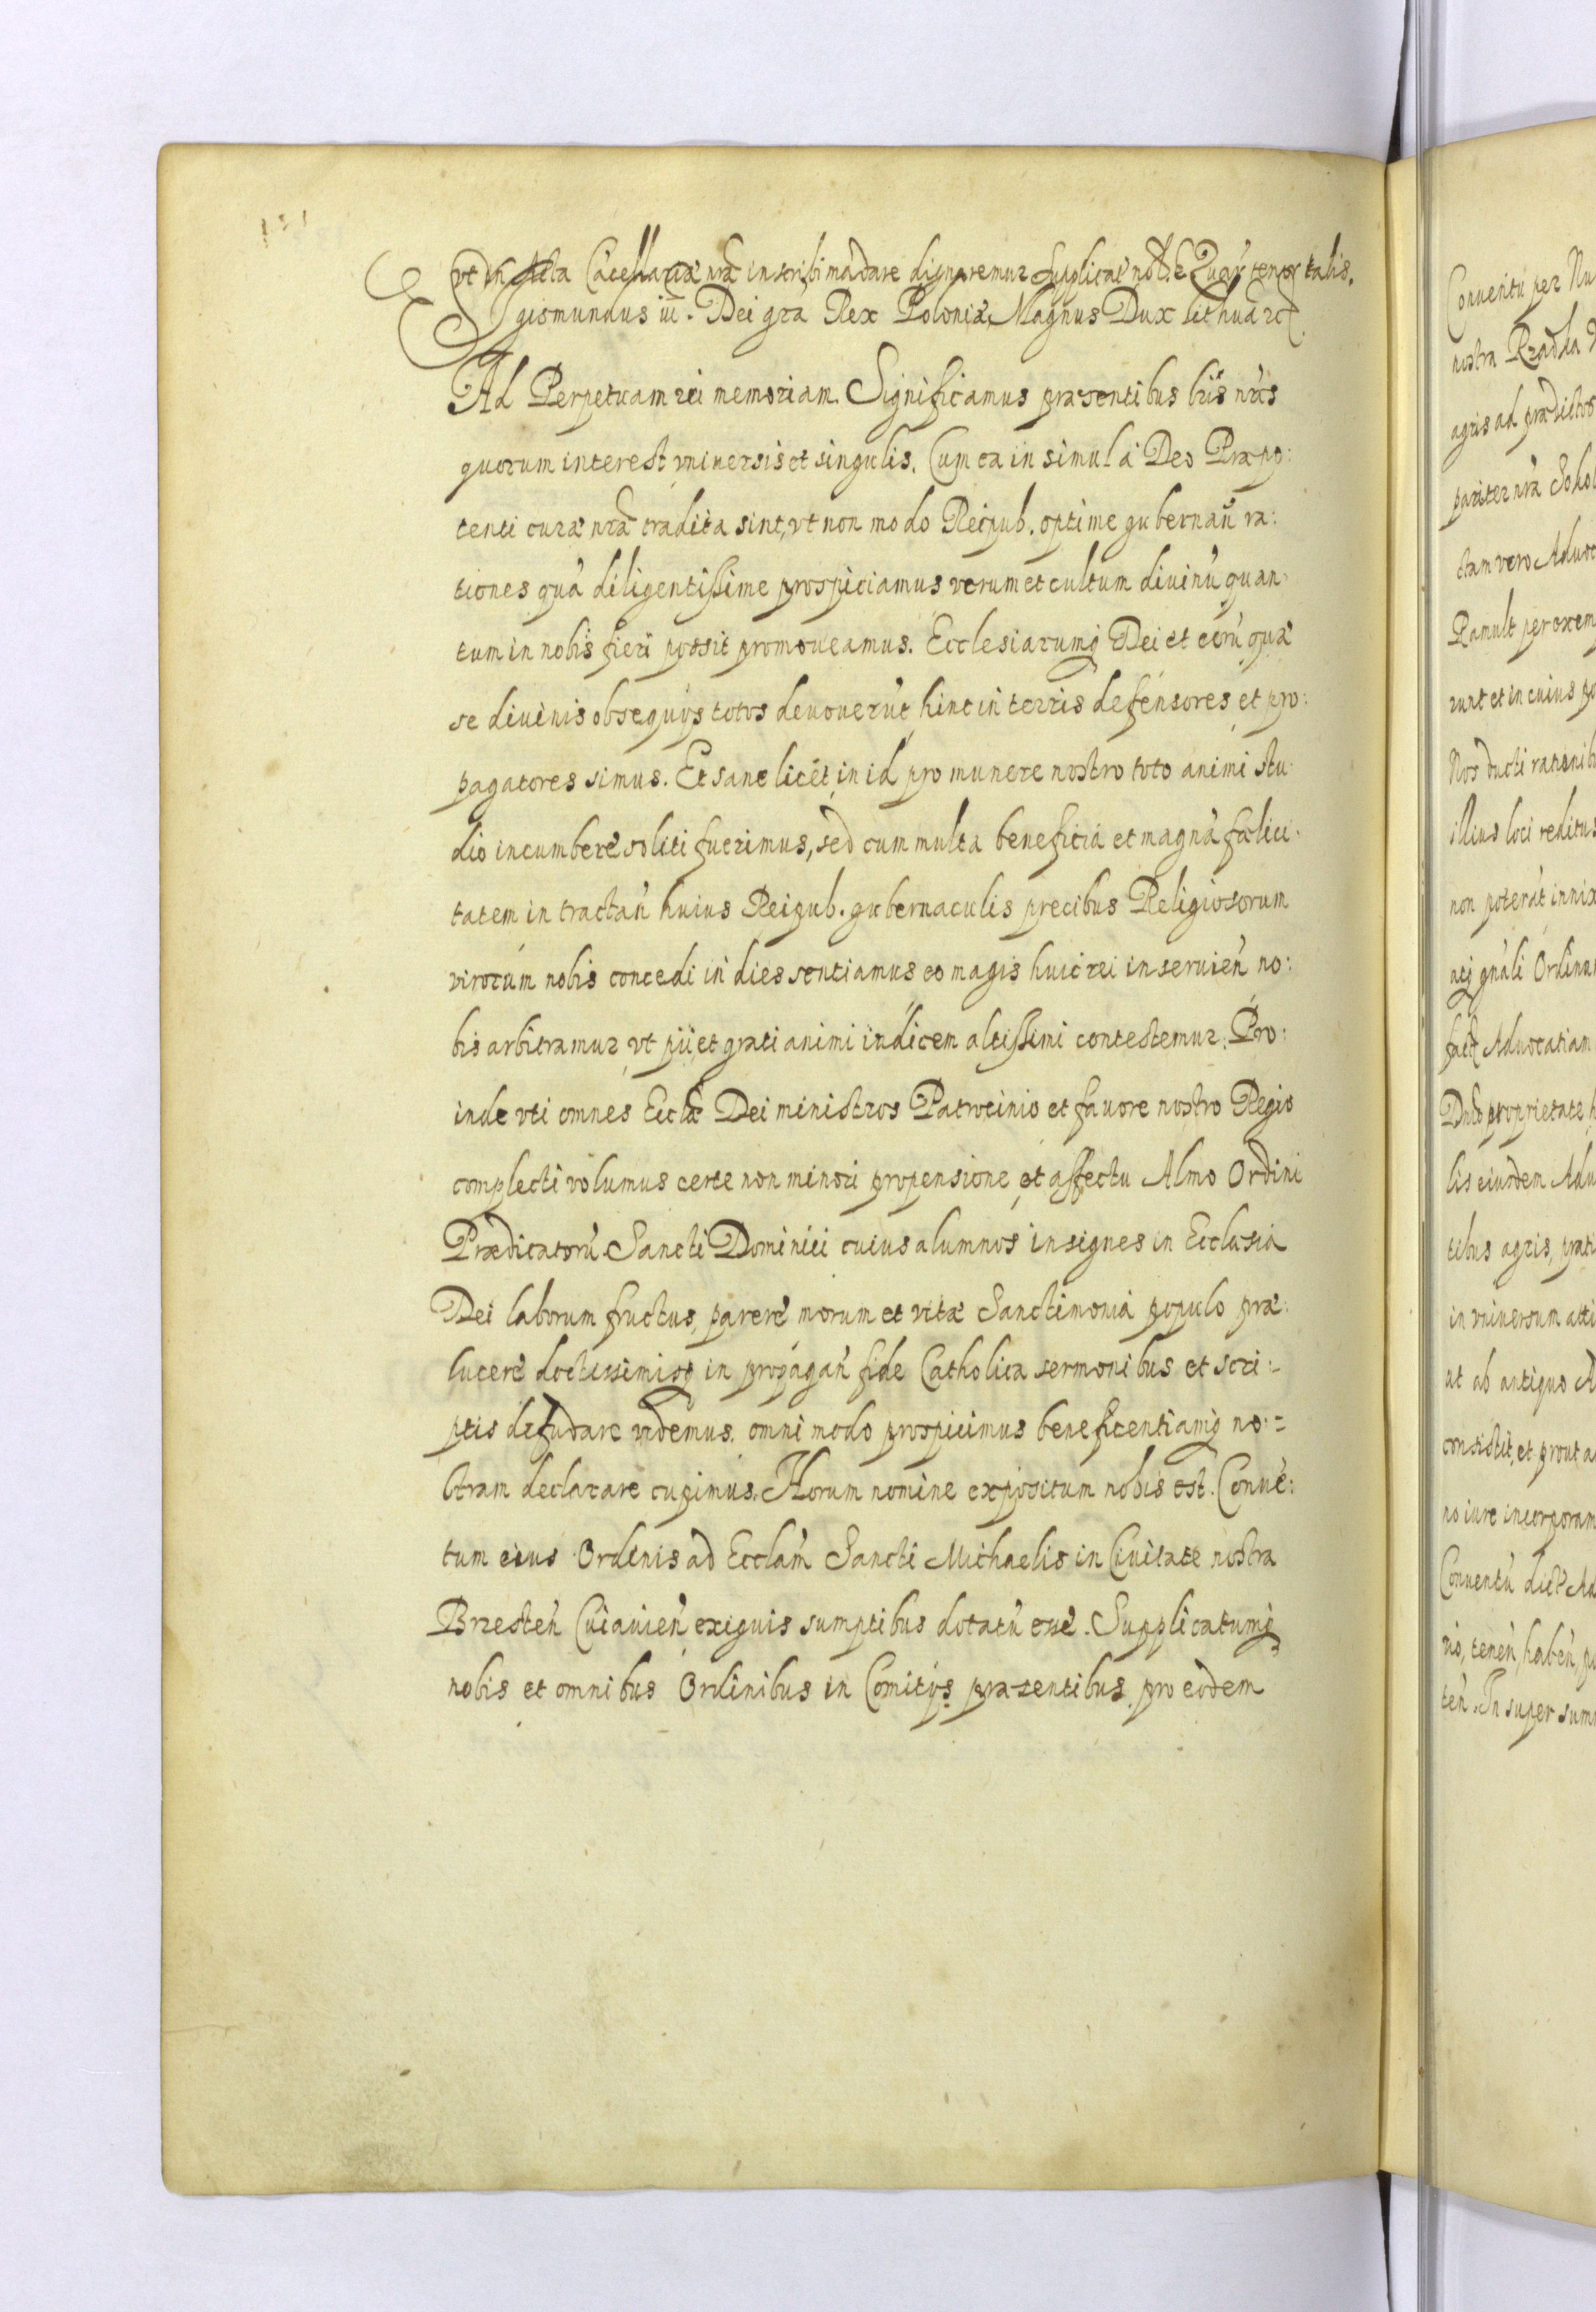 vt in Acta Cācellariæ nrā inscribi mādare dignaremur Supplicāē Quarū tenor talis.
Sigismundus iii. Dei grā Rex Poloniæ, Magnus Dux Lithuā etc.
Ad Perpetuam rei memoriam. Significamus præsentibus lrīs nrīs
quorum interest vniuersis et singulis. Cum ea in simul á Deo Præpo:
tenti curæ nrā tradita sint, vt non modo Reipub. optime gubernan̄ ra:
tiones quā diligentissime prospiciamus verum et cultum diuinū quan:
tum in nobis fieri possit promoueamus. Ecclesiarumq; Dei et eorū quæ
se diuinis obsequÿs totos deuouerūt hinc in terris defensores et pro:
pagatores simus. Et sane licēt in id pro munere nostro toto animi stu:
dio incumberē soliti fuerimus, sed cum multa beneficia et magnā fælici:
tatem in tractan̄ huius Reipub. gubernaculis precibus Religiosorum
virorum nobis concedi in dies sentiamus eo magis huic rei inseruien̄ no:
bis arbitramur vt pii et grati animi indicem altissimi contestemur. Pro:
inde vti omnes Ecclæ Dei ministros Patrocinio et fauore nostro Regio
complecti volumus certe non minori propensione et affectu Almo Ordini
Prædicatorū Sancti Dominici cuius alumnos insignes in Ecclesia
Dei laborum fructus, parerē morum et vitæ Sanctimonia populo præ:
lucerē doctissimisq; in propagan̄ fide Catholica sermonibus et scri:
ptis desudare videmus. omni modo prospicimus beneficentiamq; no:
stram declarare cupimus. Horum nomine expositum nobis est. Conuē:
tum eius Ordinis ad Ecclām Sancti Michaelis in Ciuitate nostra
Brzesten̄ Cuiauien̄ exiguis sumptibus dotatū esse. Supplicatumq;
nobis et omnibus Ordinibus in Comitÿs præsentibus pro eodem
Conuentū per Nu
nostra Rzadka
agris ad prædictos
pariter nrā Sokol
ctam vero Aduoc
Ramult per exem
runt et in cuius po
Nos ducti rationib
illius loci reditus
non poterāt innix
atq; gnāli Ordinat
Aduocatiam
proprietate h
lis eiusdem Adu
tibus agris, prati
in vniuersum atti
ut ab antiquo A
consistit, et prout a
no iure incorporam
Conuentū dict Ad
rio, tenen̄, haben̄, po
ten̄. In super sum